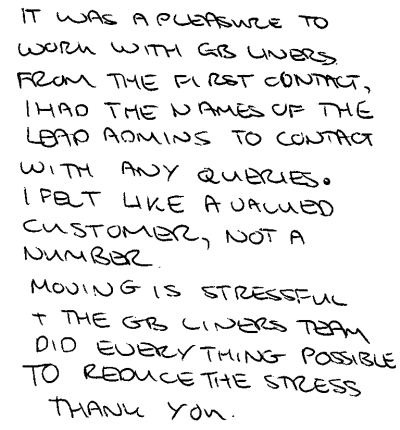 IT WAS A PLEASURE TO
WORK WITH GB LINERS.
FROM THE FIRST CONTACT,
I HAD THE NAMES OF THE
LEAD ADMINS TO CONTACT
WITH ANY QUERIES.
I FELT LIKE A VALUED
CUSTOMER, NOT A
NUMBER.
MOVING IS STRESSFUL
+ THE GB LINERS TEAM
DID EVERYTHING POSSIBLE
TO REDUCE THE STRESS
THANK YOU.